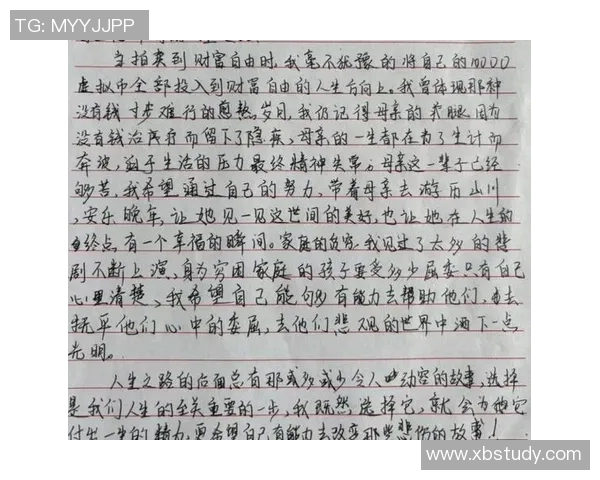 TG: MYYJJPP
当拍卖到财富自由时,我毫不犹豫的将自己的10000
虚拟币全部投入到财富自由的人生方向上。我曾体现那种
没有钱寸步难行的煎熬岁月,我仍记得母亲的 腿,因为
没有钱治疗而留下了隐疾,母亲的一生都在为了生计而
奔波,迫于生活的压力最终精神失常。母亲这一辈子已经
够苦,我希望通过自己的努力,带着母亲去游历山川
,安乐晚年,让她见一见这世间的美好,也让她在人生的
终点有一个幸福的瞬间。家庭的贫穷,我见过了太多的悲
剧不断上演,身为穷困家庭的孩子要受多少屈委只有自己
心里清楚,我希望自己能够有能力去帮助他们,去
抚平他们心中的委屈,去他们悲观的世界中洒下一点
光明。
人生之路的后面总有那或多或少令人动容的故事,选择
是我们人生的至关重要的一步,我既然选择它,就会为他
付出一生的精力,更希望自己有能力去改变那些悲伤的故事!
www.xbstudy.com